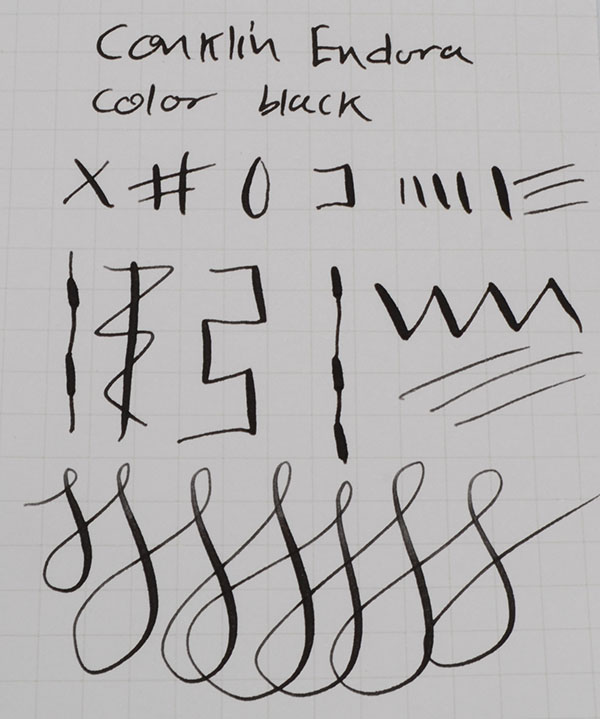 Conklin Endura
Color black
X # 0